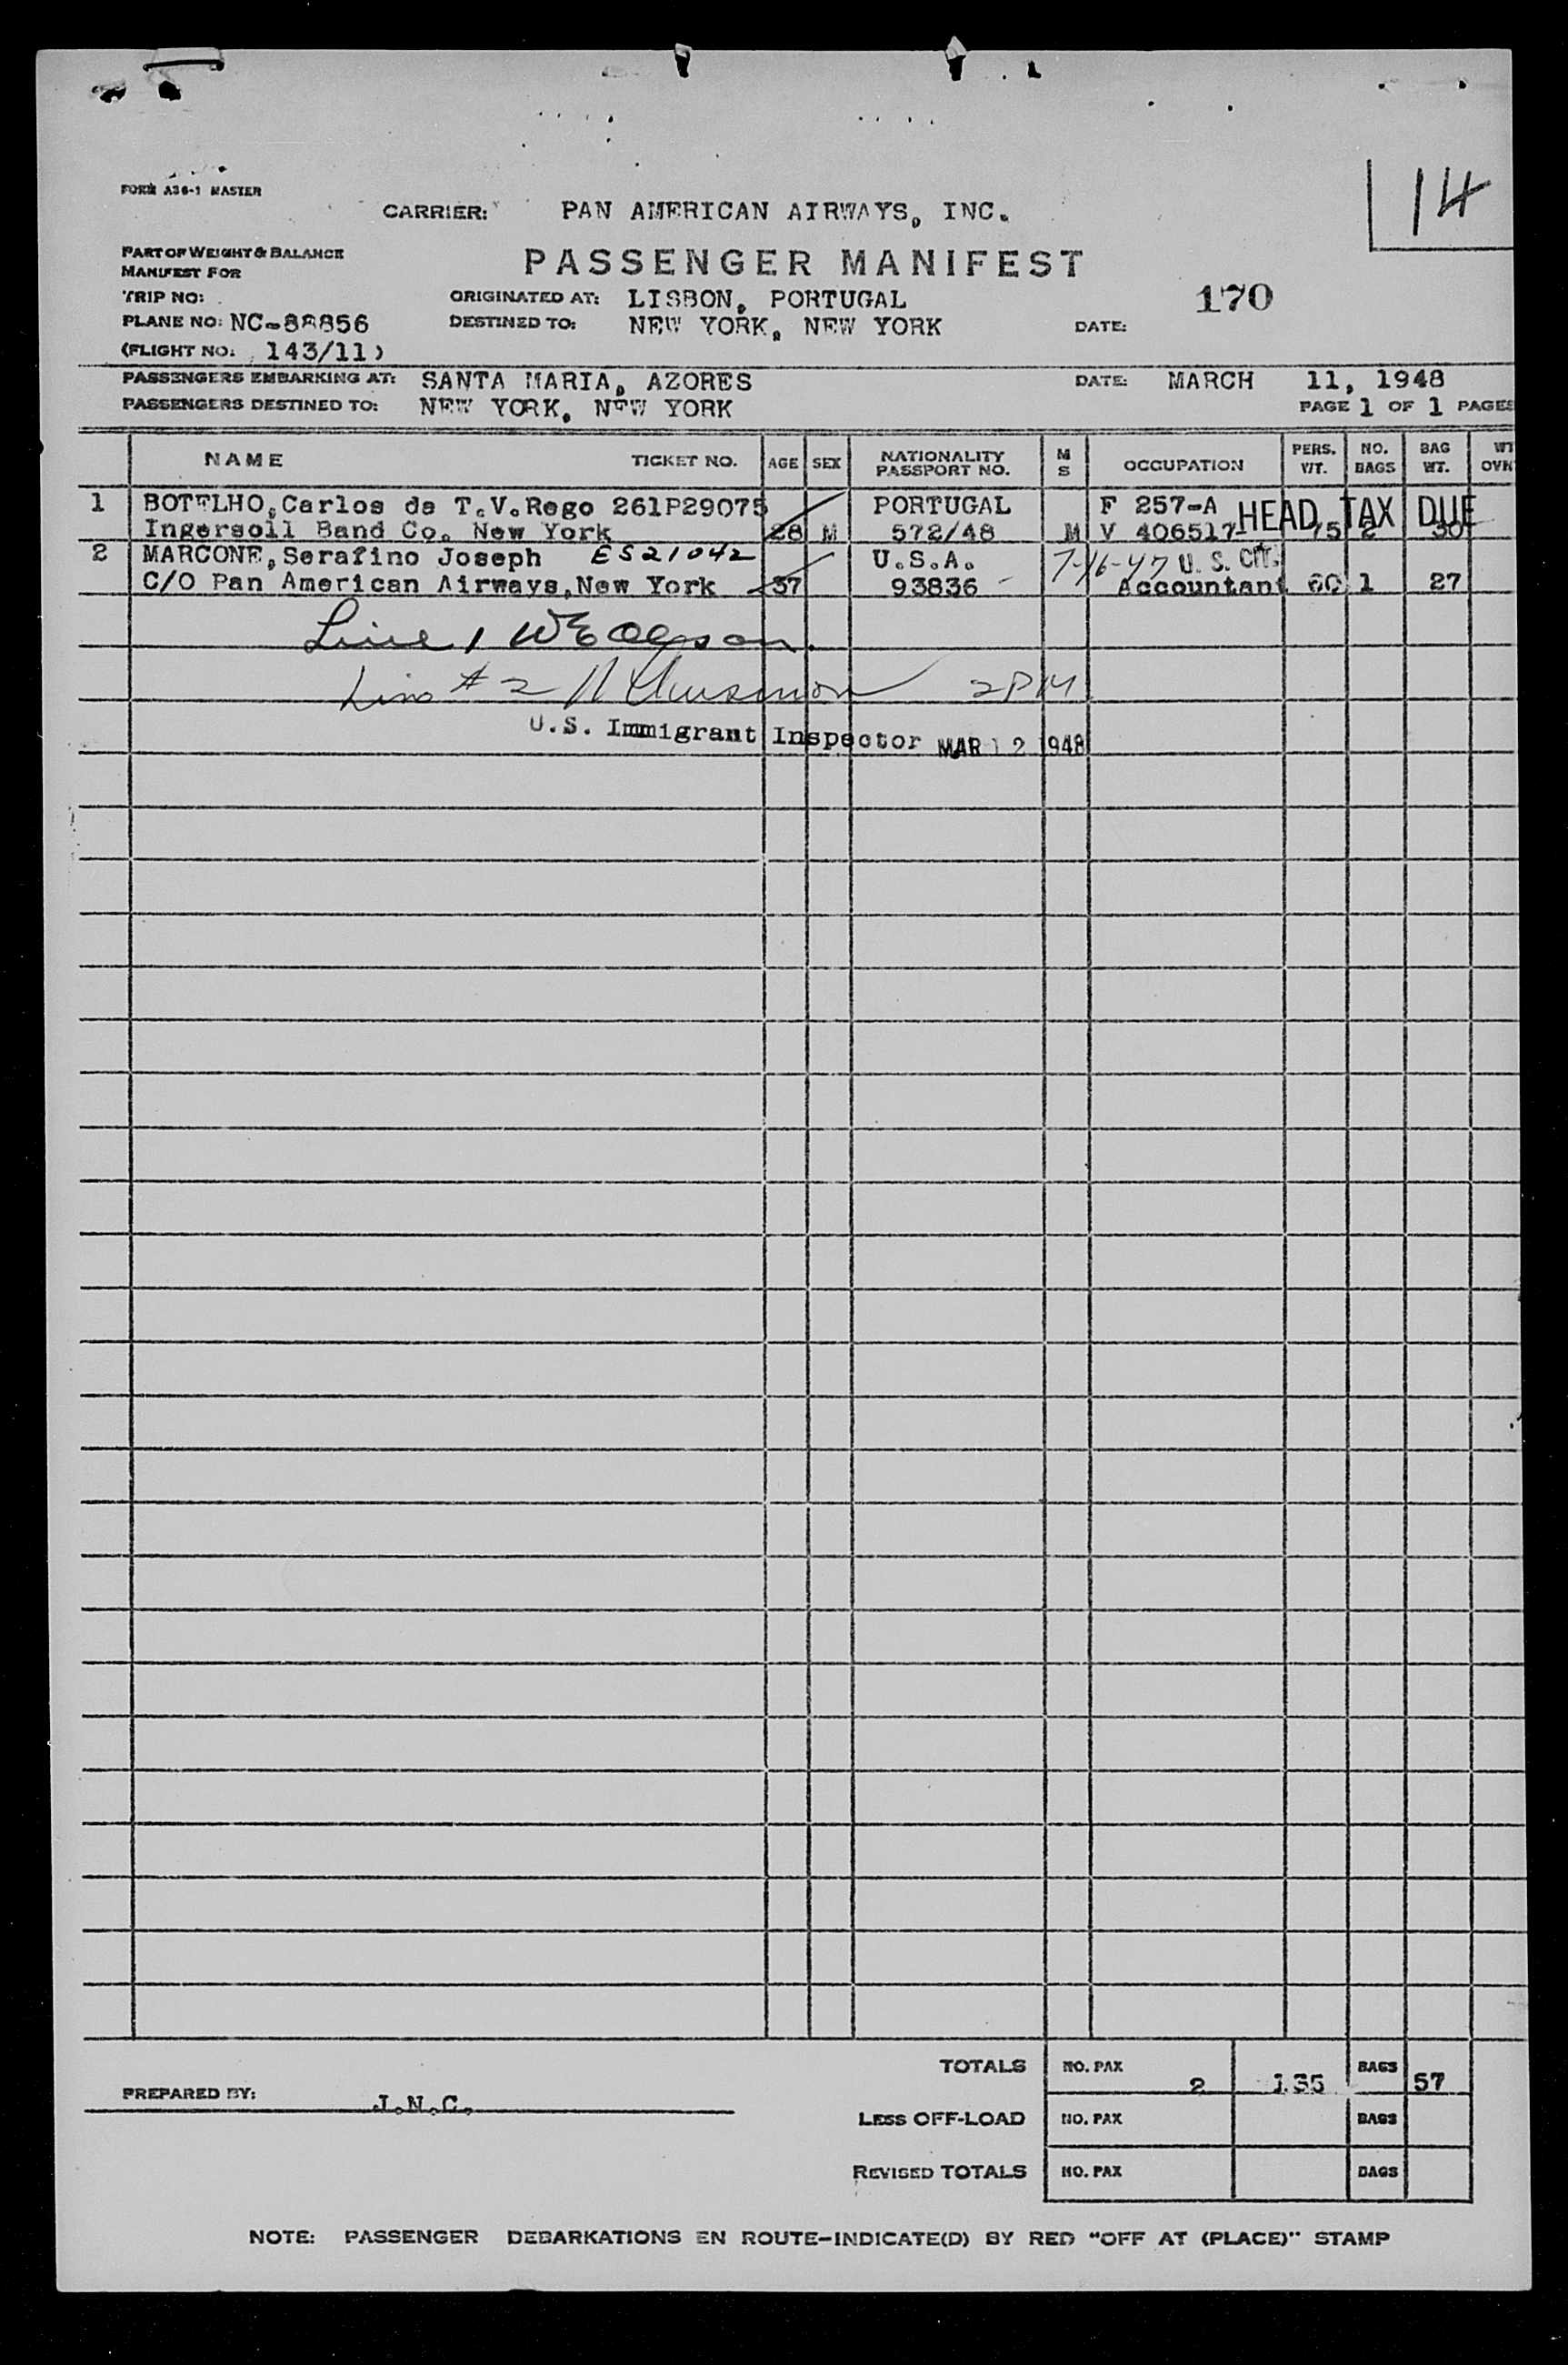 14
FORM A36-1 MASTER
CARRIER: PAN AMERICAN AIRWAYS, INC.
PART OF WEIGHT & BALANCE
MANIFEST FOR
PASSENGER MANIFEST
170
TRIP NO: ORIGINATED AT: LISBON, PORTUGAL
PLANE NO: NC-88856 DESTINED TO: NEW YORK, NEW YORK DATE:
(FLIGHT NO: 143/11)
PASSENGERS EMBARKING AT: SANTA MARIA, AZORES DATE: MARCH 11, 1948
PASSENGERS DESTINED TO: NEW YORK, NEW YORK PAGE 1 OF 1 PAGES
NAME TICKET NO. AGE SEX NATIONALITY PASSPORT NO. M S OCCUPATION PERS. WT. NO. BAGS BAG WT. WT OVR
1 BOTELHO, Carlos de T.V. Rego 261P29075 PORTUGAL F 257-A HEAD TAX DUE
Ingersoll Band Co. New York 28 M 572/48 M V 406517- 75 2 30
2 MARCONE, Serafino Joseph ES21042 U.S.A. 7-16-47 U.S. CIT.
C/O Pan American Airways, New York 37 93836 - Accountant 60 1 27
Line 1 WE
Line # 2 2PM
U.S. Immigrant Inspector MAR 12 1948
TOTALS NO. PAX 2 135 BAGS 57
PREPARED BY: J.N.C.
LESS OFF-LOAD NO. PAX BAGS
REVISED TOTALS NO. PAX BAGS
NOTE: PASSENGER DEBARKATIONS EN ROUTE-INDICATE(D) BY RED "OFF AT (PLACE)" STAMP